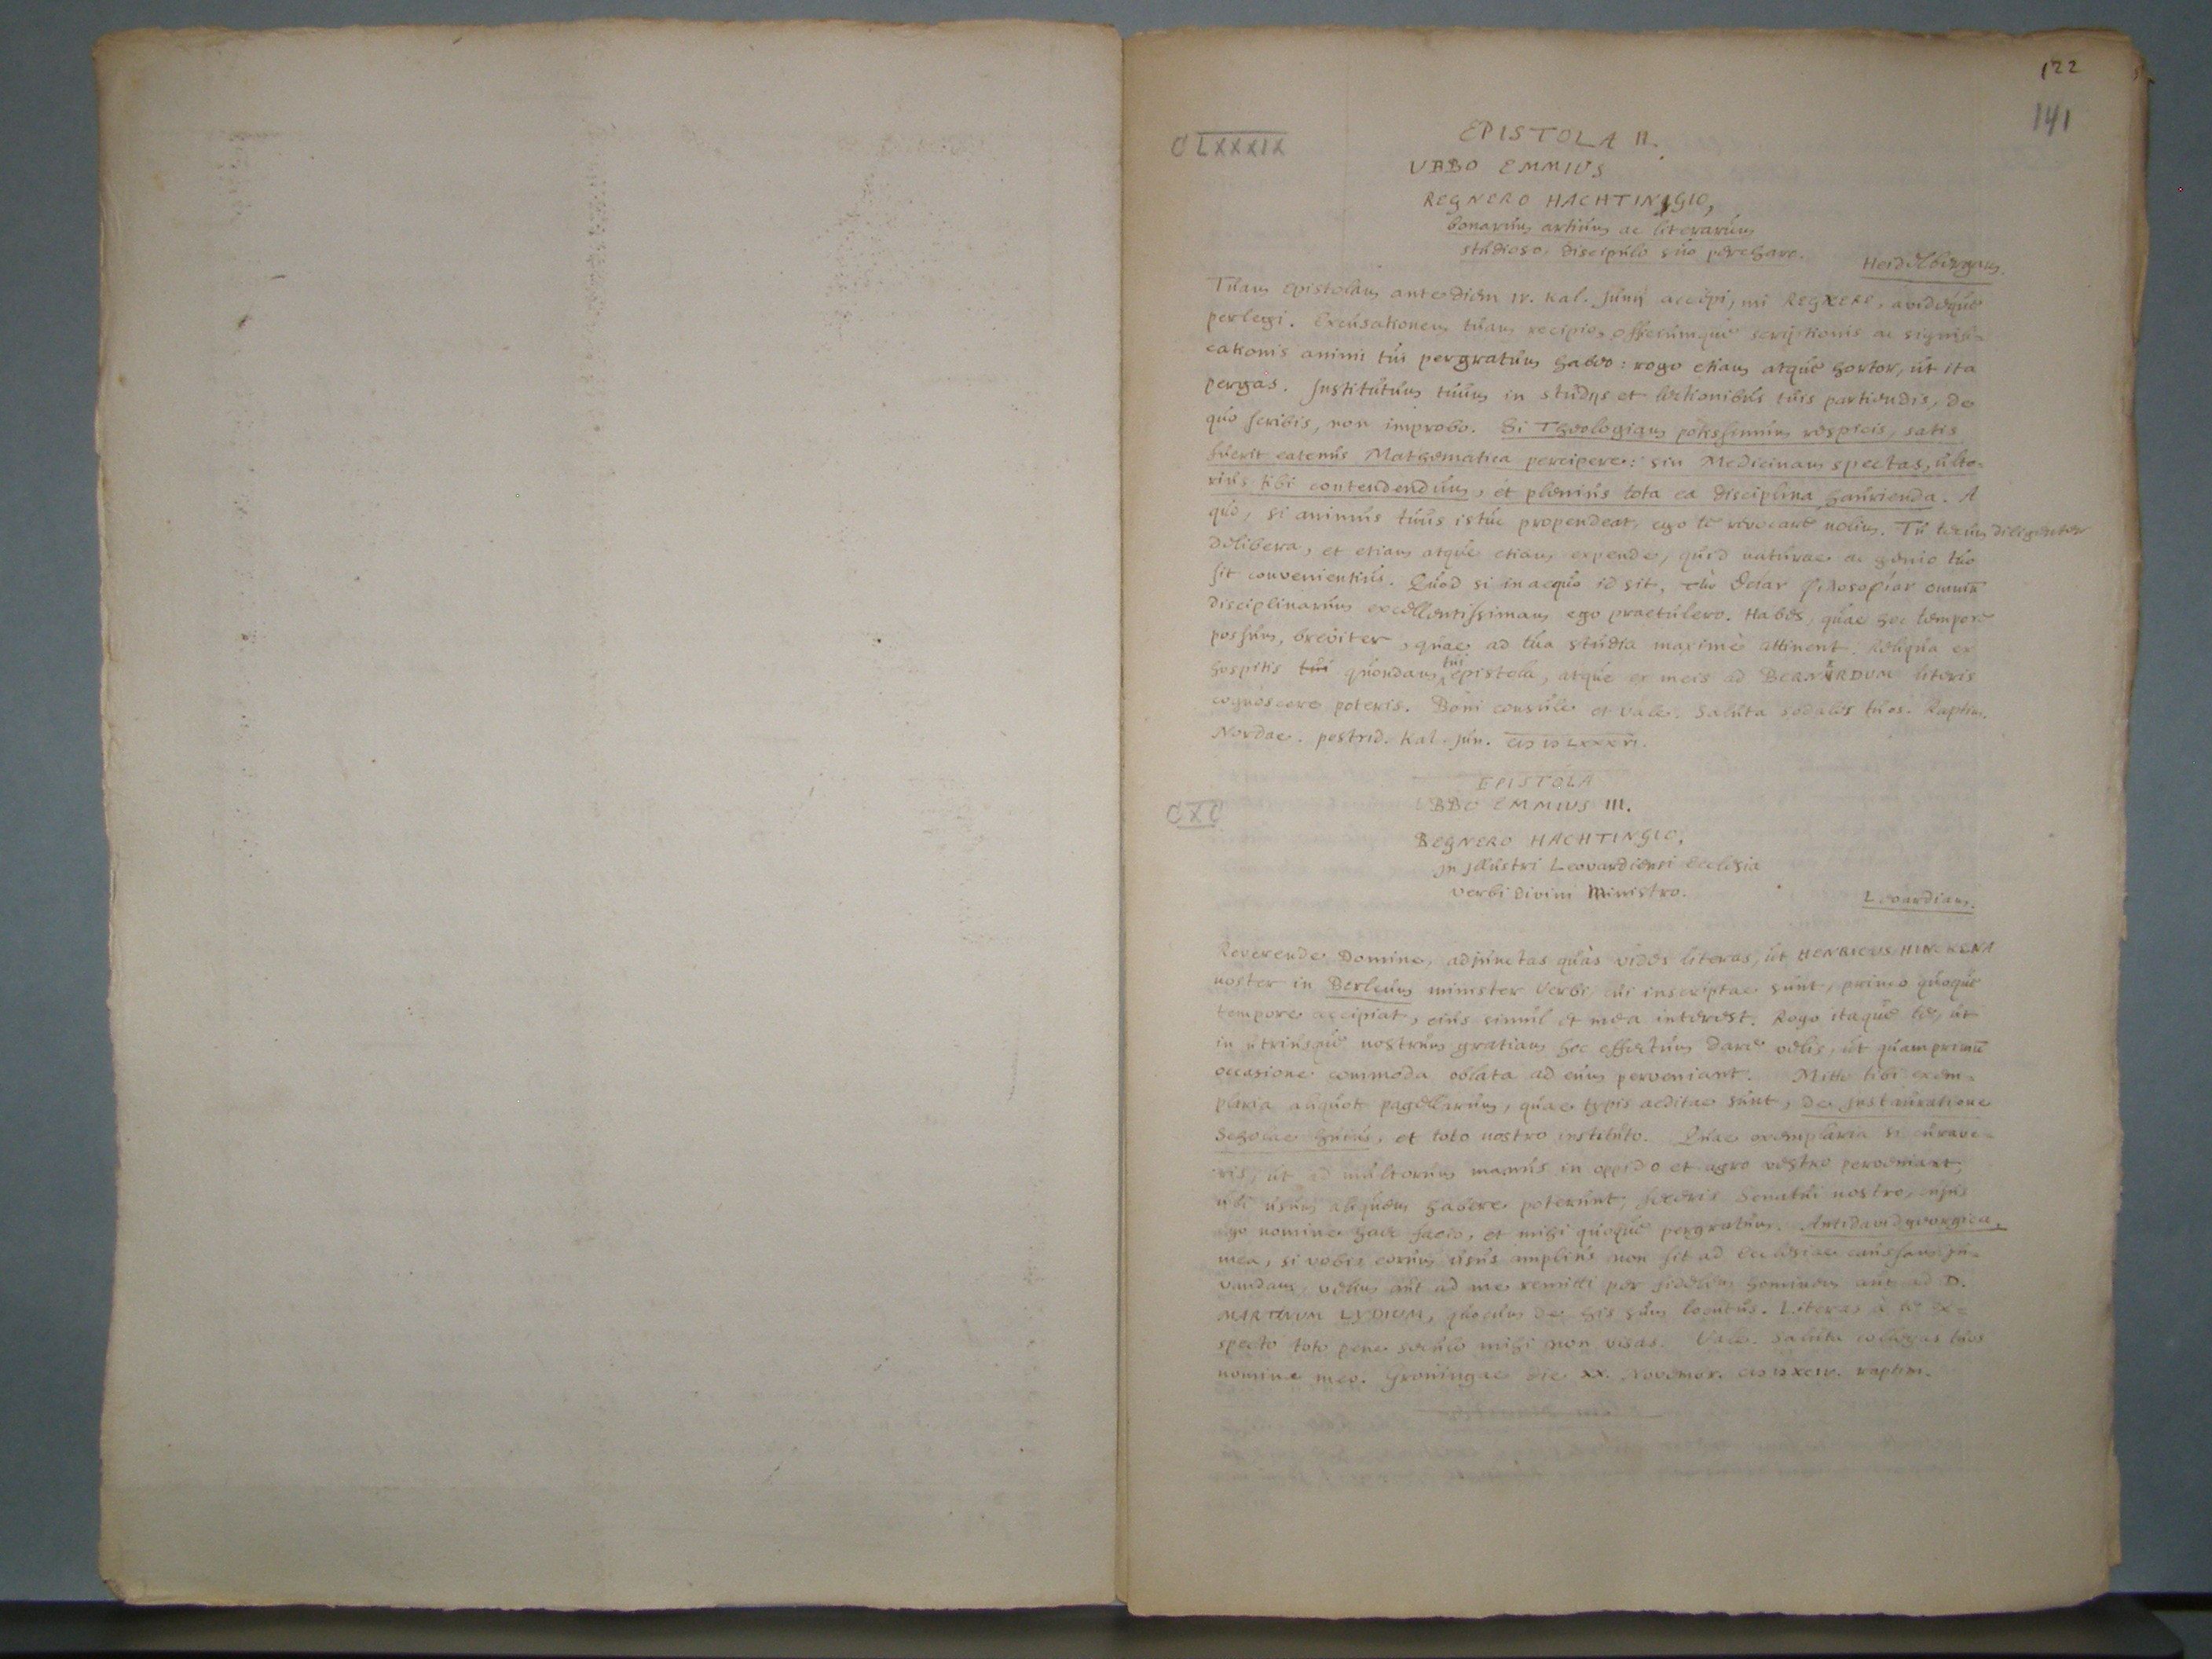 122
141
CLXXXIX
EPISTOLA II.
UBBO EMMIUS
REGNERO HACHTINGIO,
bonarum artium ac literarum
studioso, discipulo suo perchare.
Heidelbergam.
Tuam epistolam ante diem IV. Kal. Junij accepi, mi REGNERE, avideque
perlegi. Excusationem tuam recipio, officiumque scriptionis ac signifi-
cationis animi tui pergratum habeo: rogo etiam atque hortor, ut ita
pergas. Institutum tuum in studijs et lectionibus tuis partiendis, de
quo scribis, non improbo. Si Theologiam potissimum respicis, satis
fuerit eatenus Mathematica percipere: sin Medicinam spectas, ulte-
rius tibi contendendum, et plenius tota ea disciplina haurienda. A
quo, si animus tuus istuc propendeat, ego te revocare nolim. Tu tecum diligenter
delibera, et etiam atque etiam expende, quid naturae ac genio tuo
sit convenientius. Quod si in aequo id sit, omniū
disciplinarum excellentissimam ego praetulero. Habes, quae hoc tempore
possum, breviter, quae ad tua studia maximè attinent. Reliqua ex
hospitis tui quondam tui epistola, atque ex meis ad BERNARDUM literis
cognoscere poteris. Boni consule et Vale. Saluta sodales tuos. Raptim.
Nordae. postrid. Kal. Jun. CIƆ IƆ LXXXVI.
CXC
EPISTOLA
UBBO EMMIUS III.
REGNERO HACHTINGIO,
in Jllustri Leovardiensi Ecclesia
Verbi Divini Ministro.
Leovardiam.
Reverende Domine, adjunctas quas vides literas, ut HENRICUS HINCKENA
noster in Berlcum minister Verbi cui inscriptae sunt, primo quoque
tempore accipiat, eius simul et mea interest. Rogo itaque te, ut
in utriusque nostrum gratiam hoc effectum dare velis, ut quamprimū
occasione commoda oblata ad eum perveniant. Mitto tibi exem-
plaria aliquot pagellarum, quae typis aeditae sunt, de Instauratione
Scholae huius, et toto nostro instituto. Quae exemplaria si curave-
ris, ut ad multorum manus in oppido et agro vestro perveniant,
ubi usum aliquem habere poterunt, feceris Senatui nostro, cujus
ego nomine haec facio, et mihi quoque pergratum. Antidavidgeorgica
mea, si vobis eorum usus amplius non sit ad Ecclesiae caussam ju-
vandam, velim aut ad me remitti per fidelem hominem aut ad D.
MARTINUM LYDIUM, quocum de his sum locutus. Literas à te ex-
specto toto pene seculo mihi non visas. Vale. Saluta collegas tuos
nomine meo. Groningae die XX. Novembr. CIƆ IƆ XCIV. raptim.